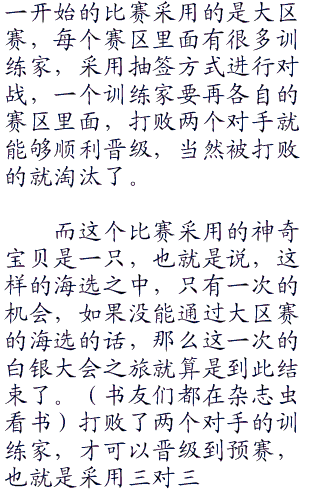 一开始的比赛采用的是大区
赛，每个赛区里面有很多训
练家，采用抽签方式进行对
战，一个训练家要再各自的
赛区里面，打败两个对手就
能够顺利晋级，当然被打败
的就淘汰了。
而这个比赛采用的神奇
宝贝是一只，也就是说，这
样的海选之中，只有一次的
机会，如果没能通过大区赛
的海选的话，那么这一次的
白银大会之旅就算是到此结
束了。（书友们都在杂志虫
看书）打败了两个对手的训
练家，才可以晋级到预赛，
也就是采用三对三